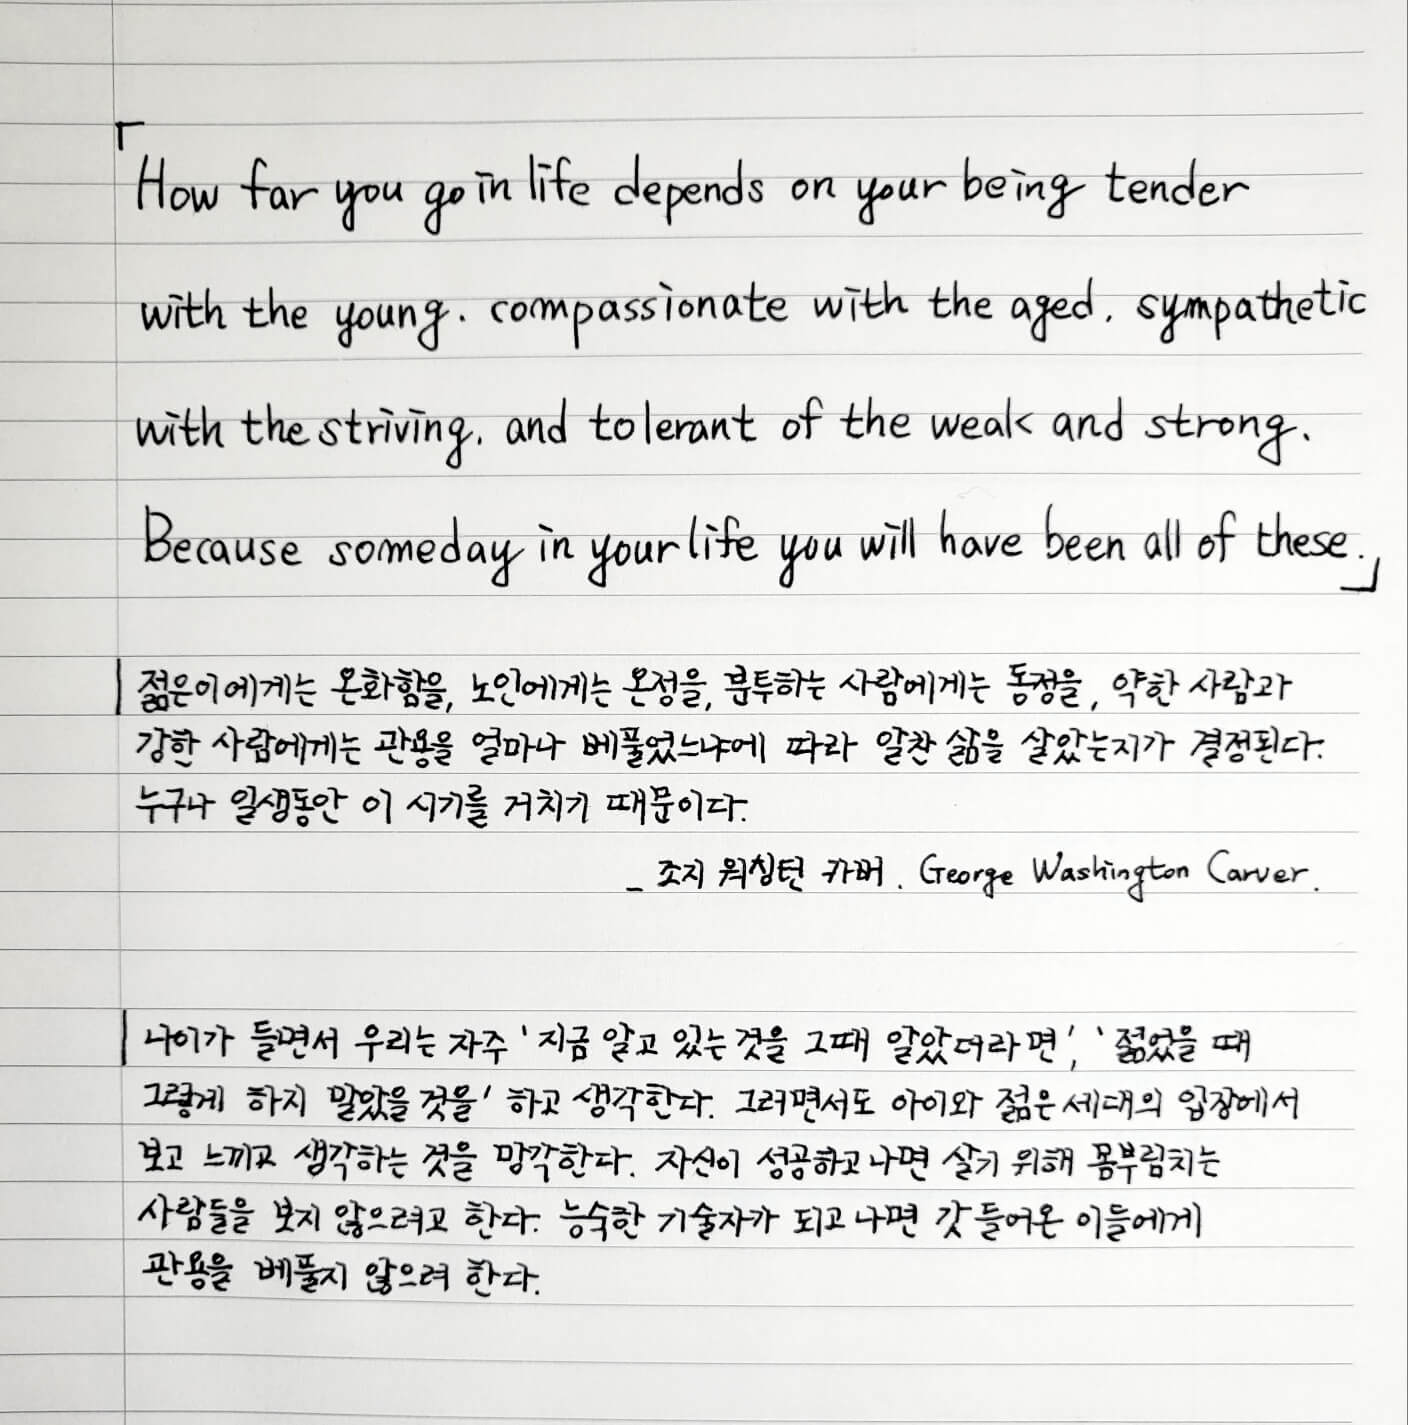 「How far you go in life depends on your being tender
with the young. compassionate with the aged. sympathetic
with the striving. and tolerant of the weak and strong.
Because someday in your life you will have been all of these.」
젊은이에게는 온화함을, 노인에게는 온정을, 분투하는 사람에게는 동정을, 약한 사람과
강한 사람에게는 관용을 얼마나 베풀었느냐에 따라 알찬 삶을 살았는지가 결정된다.
누구나 일생동안 이 시기를 거치기 때문이다.
_ 조지 워싱턴 카버. George Washington Carver.
나이가 들면서 우리는 자주 '지금 알고 있는 것을 그때 알았더라면', '젊었을 때
그렇게 하지 말았을 것을' 하고 생각한다. 그러면서도 아이와 젊은 세대의 입장에서
보고 느끼고 생각하는 것을 망각한다. 자신이 성공하고 나면 살기 위해 몸부림치는
사람들을 보지 않으려고 한다. 능숙한 기술자가 되고 나면 갓 들어온 이들에게
관용을 베풀지 않으려 한다.